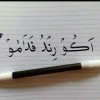 اَكُوْ رِنْدُ فَدَامُوْ